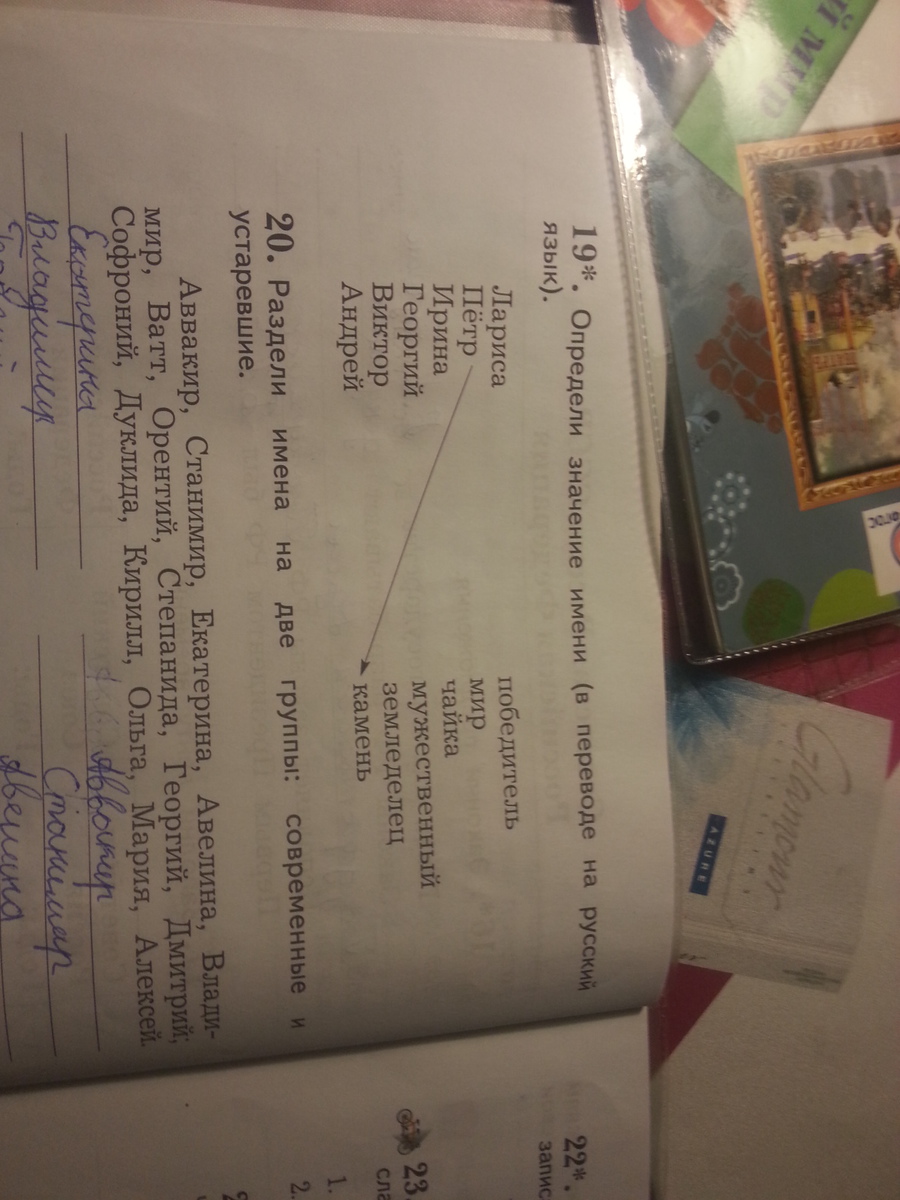 Й МИР
ФГОС
Glamour
AZURE
19*. Определи значение имени (в переводе на русский
язык).
Лариса победитель
Пётр мир
Ирина чайка
Георгий мужественный
Виктор земледелец
Андрей камень
20. Раздели имена на две группы: современные и
устаревшие.
Аввакир, Станимир, Екатерина, Авелина, Влади-
мир, Ватт, Орентий, Степанида, Георгий, Дмитрий,
Софроний, Дуклида, Кирилл, Ольга, Мария, Алексей
Екатерина Аввакир
Владимир Станимир
Авелина
22*.
запис
23
сла
1.
2.